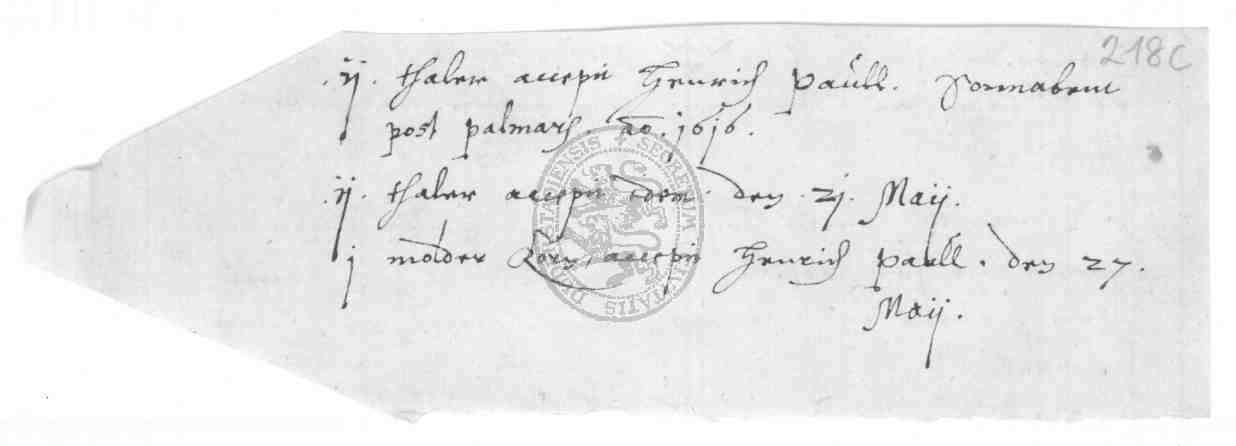 218c
.ij. thaler accepit Henrich Paull. Sonnabent
post palmarū ao. 1616.
.ij. thaler accepit idem den 2j. Maij.
j molder Korn, accepit Henrich Paull. den 27.
Maij.
DI ETATIS SECRETUM TATIS